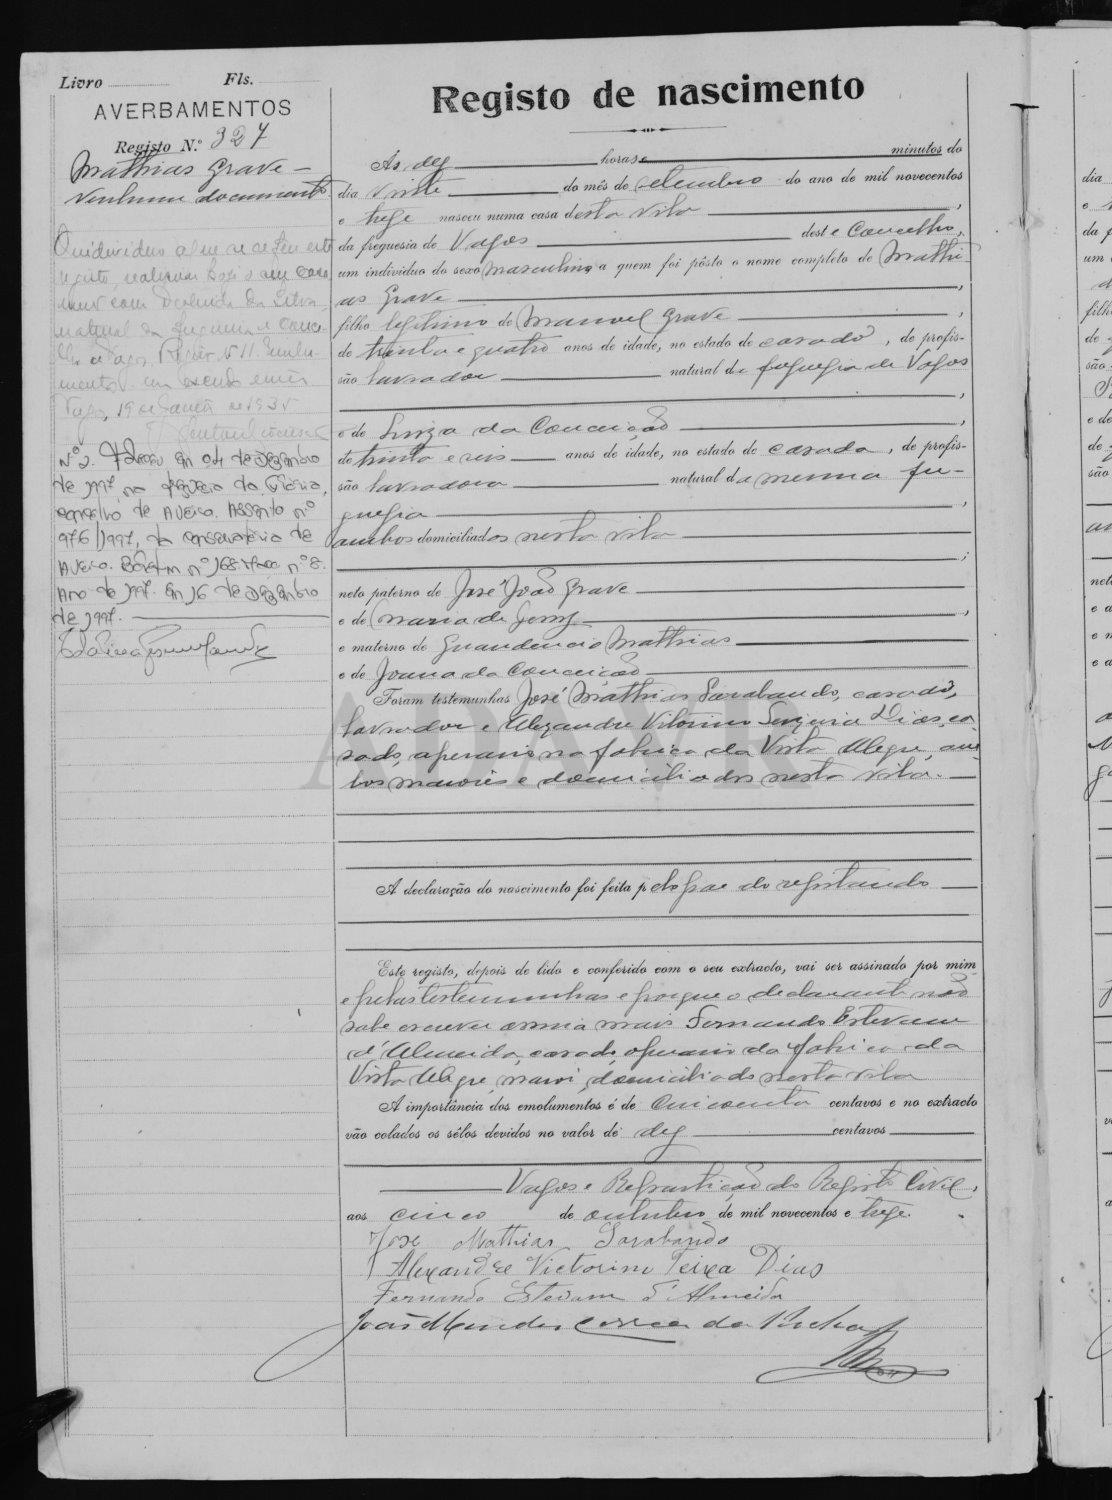 Livro Fls.
AVERBAMENTOS
Registo N.º 327
Mathias Grave –
Nenhum documento
O individuo a que se refere este
registo, realizou hoje o seu casa-
mento com da Silva,
natural da freguesia e conce-
lho de Vagos. Registo nº 11. Emolu-
mentos: um escudo
Vagos, 19 de Janeiro de 1935
Nº 2. Faleceu em 04 de Dezembro
de 1997, na freguesia da Glória,
concelho de Aveiro. Assento nº
976/1997, da conservatória de
Aveiro. Boletim nº 168 Maço nº 8.
Ano de 1997. Em 16 de Dezembro
de 1997.
Registo de nascimento
Ás dez horas e minutos do
dia vinte do mês de setembro do ano de mil novecentos
e treze nasceu numa casa desta vila,
da freguesia de Vagos deste Concelho,
um individuo do sexo masculino a quem foi pôsto o nome completo de Mathi-
as Grave,
filho legitimo de Manuel Grave,
de trinta e quatro anos de idade, no estado de casado, de profis-
são lavrador natural da freguesia de Vagos
,
e de Luiza da Conceição,
de trinta e seis anos de idade, no estado de casada, de profis-
são lavradora natural da mesma fre-
guesia,
ambos domiciliados nesta vila
;
neto paterno de José João Grave
e de Maria de Jesus,
e materno de Mathias
e de Joana da Conceição
Foram testemunhas José Mathias Sarabando, casado,
lavrador e Alexandre Vitorino Dias, ca
sado, operario na fabrica da Vista Alegre, am
bos maiores e domiciliados nesta vila.
A declaração do nascimento foi feita pelo pae do registando
Este registo, depois de lido e conferido com o seu extracto, vai ser assinado por mim
e pelas testemunhas e porque o declarante não
sabe escrever assina mais Fernando Estevam
d'Almeida, casado, operario da fabrica da
Vista Alegre, maior, domiciliado nesta vila
A importância dos emolumentos é de cincoenta centavos e no extracto
vão colados os sêlos devidos no valor de dez centavos
Vagos e Repartição do Registo Civil,
aos cinco de outubro de mil novecentos e treze.
José Mathias Sarabando
Alexandre Victorino Dias
Fernando Estevam d'Almeida
João Mendes Correia da Rocha